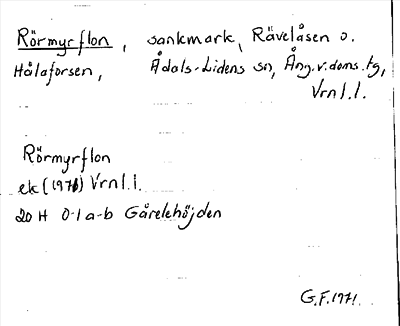 Rörmyrflon, sankmark, Rävelåsen o.
Hålaforsen, Ådals-Lidens sn, Ång.v.doms.tg,
Vrnl.l.
Rörmyrflon
ek (1971) Vrnl.l.
20 H 0-1 a-b Gårelehöjden
G.F. 1971.